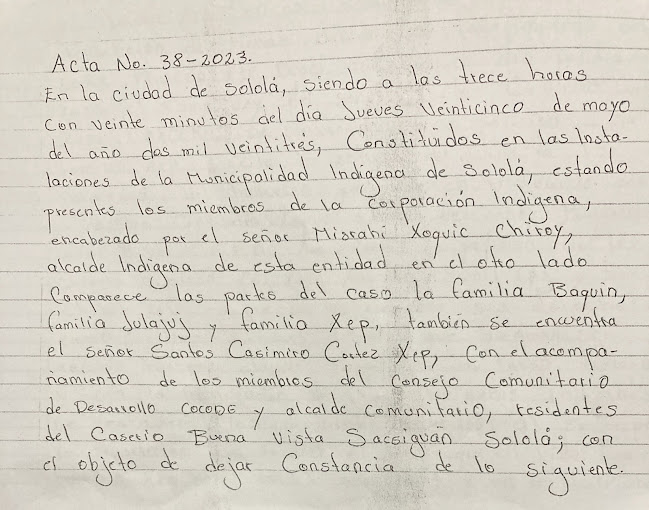 Acta No. 38-2023.
En la ciudad de Sololá, siendo a las trece horas
con veinte minutos del día Jueves Veinticinco de mayo
del año dos mil veintitrés, Constituidos en las Insta-
laciones de la Municipalidad Indigena de Sololá, estando
presentes los miembros de la Corporación Indígena,
encabezado por el señor Misrahi Xoquic Chiroy,
alcalde Indigena de esta entidad en el otro lado
Comparece las partes del caso la familia Baquin,
familia Julajuj y familia Xep, también se encuentra
el señor Santos Casimiro Cortez Xep, con el acompa-
ñamiento de los miembros del Consejo Comunitario
de Desarrollo COCODE y alcalde comunitario, residentes
del Caserio Buena Vista Sacsiguán Sololá; con
el objeto de dejar Constancia de lo siguiente.